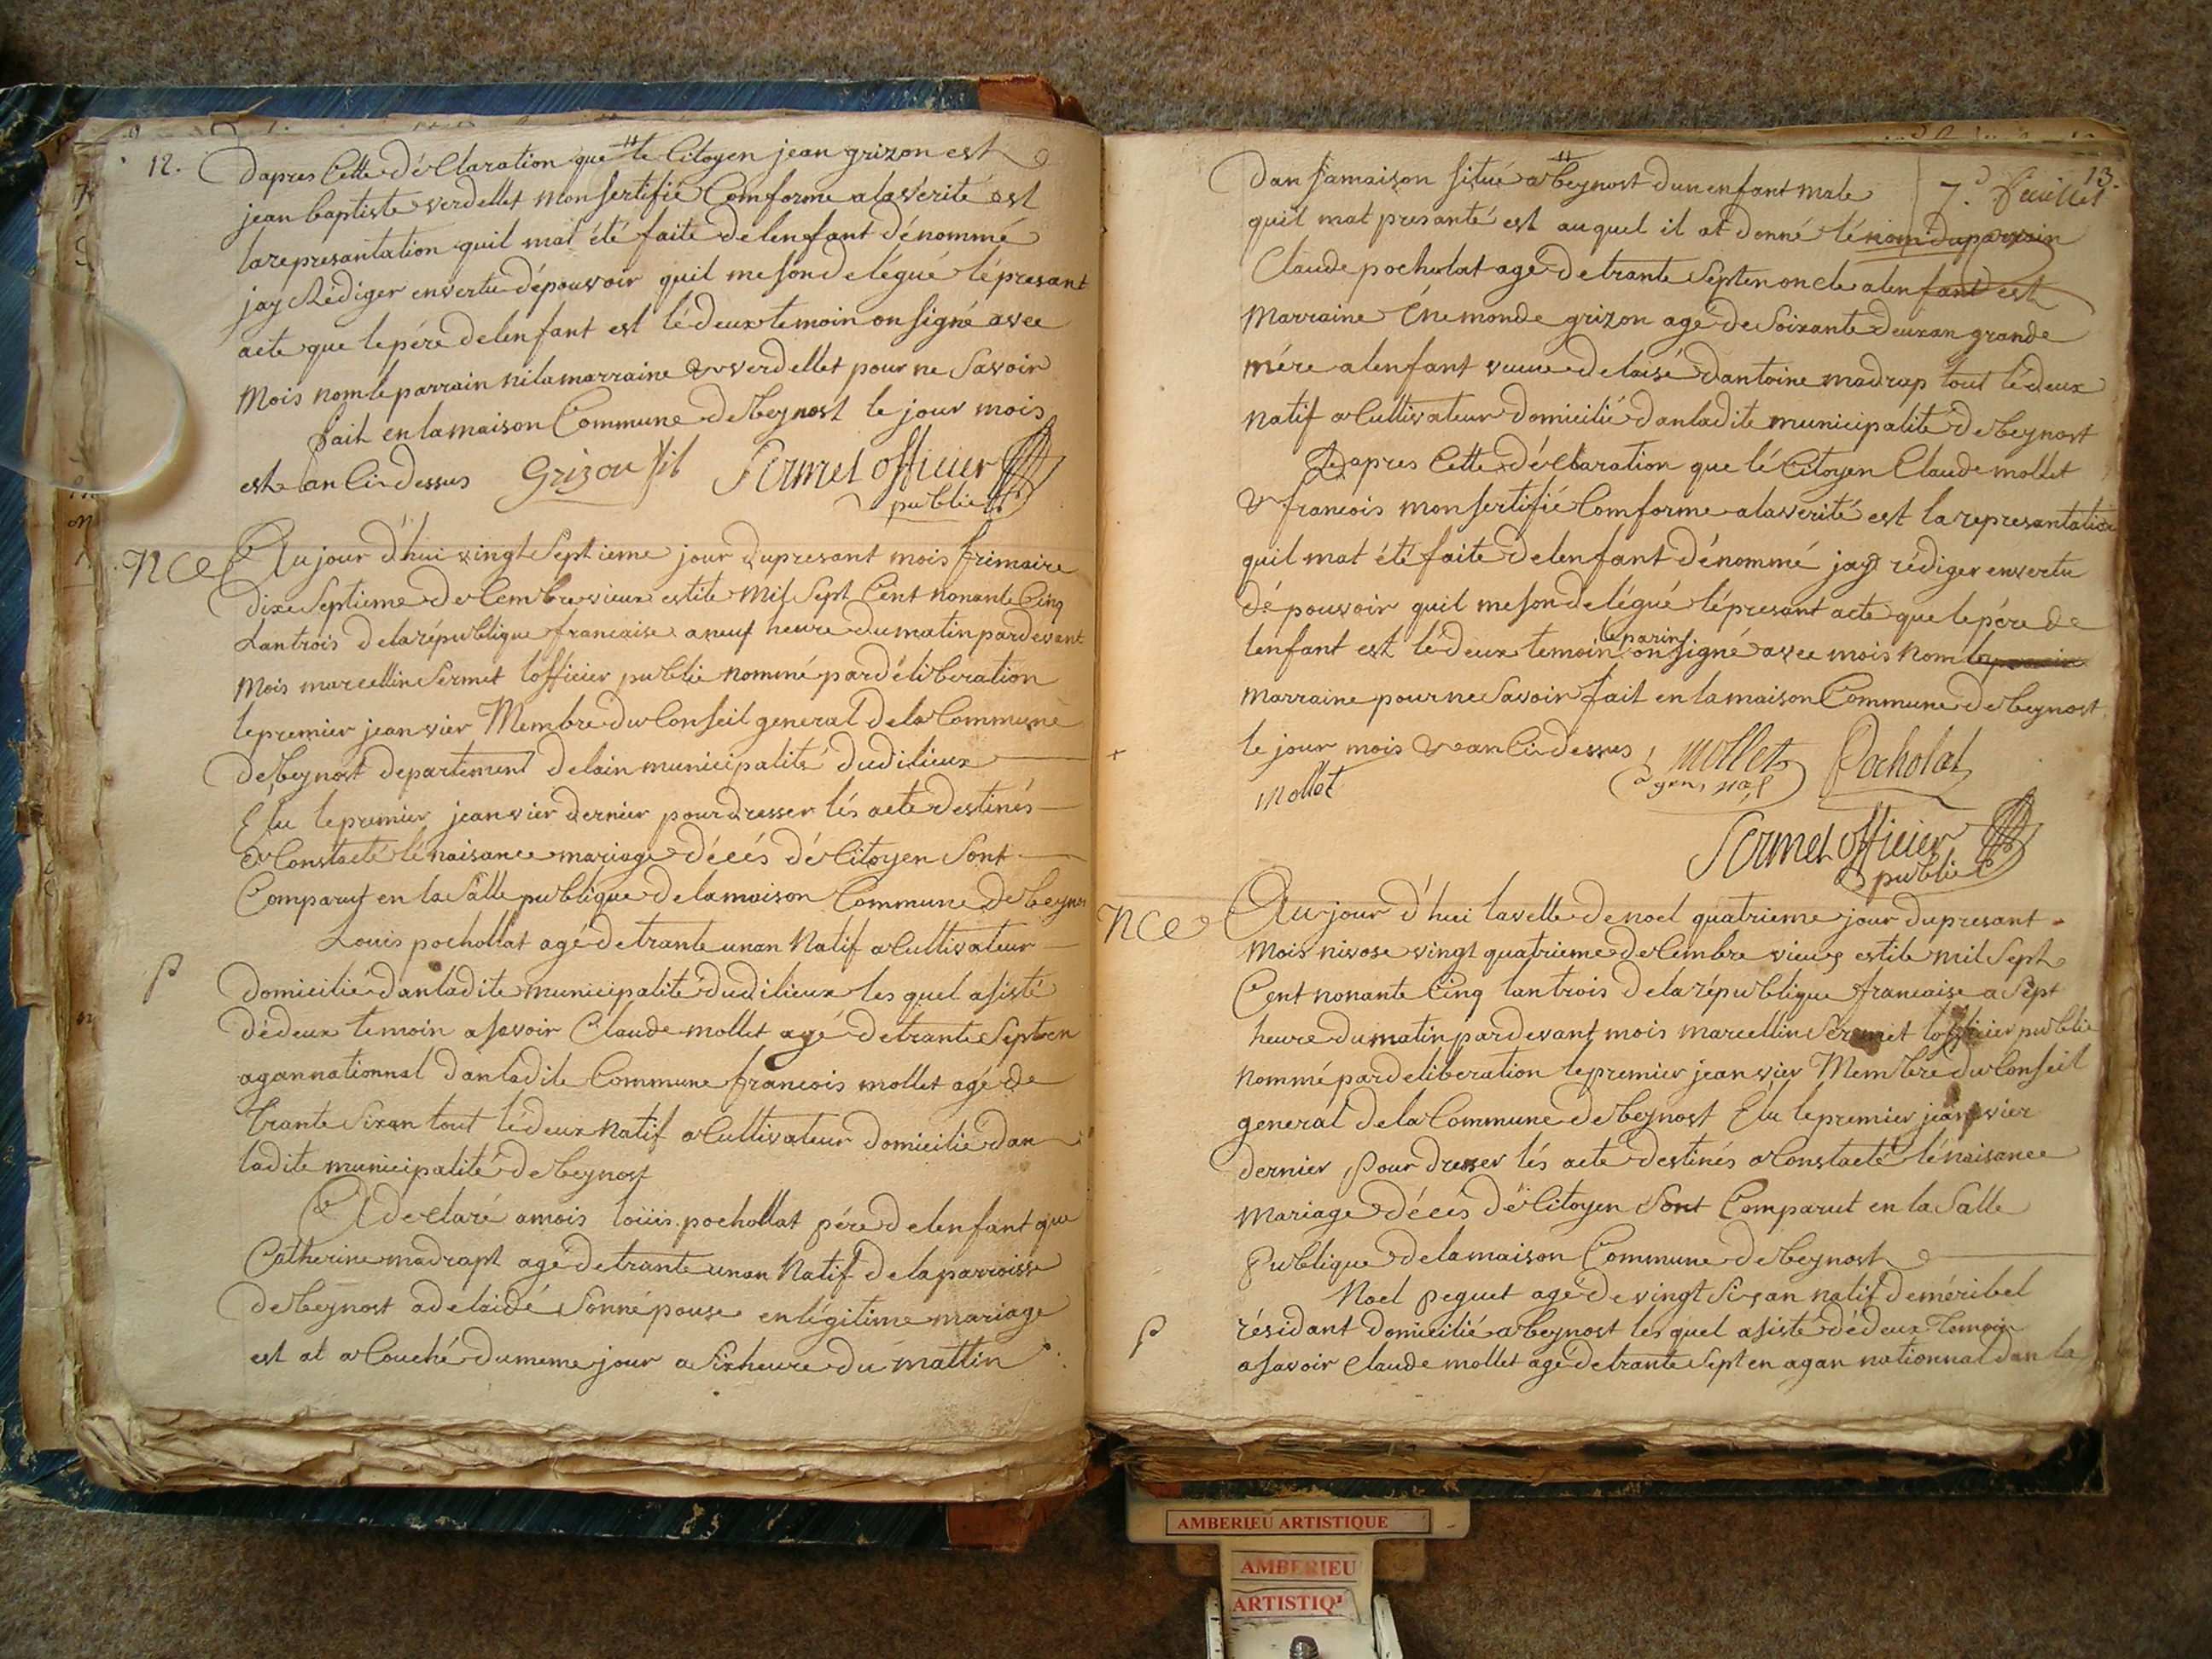 12.
Dapres Cette déClaration que le Citoyen jean grizon est
jean baptiste verdellet mon sertifié Comforme alaverité est
larepresantation quil mat été faite delenfant dénommé
jay Rédiger envertu dépouvoir quil meson delégué léprésant
acte que le pére delenfant est lédeux temoin on signé avec
Mois nom le parrain ni lamarraine & verdellet pour ne Savoir
fait en lamaison Commune de beynost le jour mois
est an Ci dessus Grizou fil Sermet officier
public
NCe Aujour d'hui vingt Septieme jour dupresant mois frimaire
dixe Septieme deCembre vieux estile Mil Sept Cent nonante Cinq
Lantrois delarépublique francaise aneuf heure dumatin pardevant
Mois marcellin Sermet lofficier public nommé pardéliberation
lepremier jeanvier Membre du Conseil general dela Commune
debeynost departement delain municipalité dudilieux
Elu lepremier jeanvier dernier pour dresser lés acte destinés
aConstacté lénaisance mariage décés déCitoyen Sont
Comparut en la Salle publique delamaison Commune de beynos
Louis pochollat agé detrante unan Natif aCultivateur
P
domicilié danladite municipalité dudilieux les quel asisté
dédeux temoin asavoir Claude mollet agé detrante Septen
agannationnal danladite Commune francois mollet agé de
trante Sixan tout lédeux Natif aCultivateur domicilié dan
ladite municipalité debeynost
Adeclaré amois loüis pochollat pére delenfant que
Catherine madrapt agé detrante unan Natif delaparroisse
debeynost adelaidé Sonnépouse enlégitime mariage
est at aCouché dumeme jour a Six heure du mattin
13.
7.e feuillet
dan Samaison Situé abeynost dun enfant male
quil mat presanté est auquel il at donné lénom duparrain
Claude pochulat agé detrante Septen oncle alenfant est
Marraine Enemonde grizon agé de Soixante deuxan grande
mére alenfant veuve delaisé dantoine madrap tout lédeux
Natif aCultivateur domicilié danladite municipalité debeynost
Dapres Cette déClaration que lé Citoyen Claude mollet
& francois mon sertifié Comforme alaverité est larepresantation
quil mat été faite delenfant dénommé jay rédiger envertu
dépouvoir quil meson delégué léprésant acte que lepére de
le parin
lenfant est lédeux temoin on signé avec mois nom
marraine pour ne Savoir fait en lamaison Commune debeynost
le jour mois & an Ci dessus mollet Pocholat
mollet agen nal
Sermet officier
public
NCe Aujour d'hui lavelle denoel quatrieme jour dupresant
Mois nivose vingt quatrieme deCembre vieux estile mil Sept
Cent nonante Cinq lantrois delarépublique francaise a Sept
heure dumatin pardevant mois marcellin Sermet lofficier public
nommé pardeliberation lepremier jeanvier Membre du Conseil
general dela Commune debeynost Elu lepremier jeanvier
dernier Pour dresser lés acte destinés aConstacté lénaisance
Mariage décés dé Citoyen Sont Comparut en la Salle
Publique delamaison Commune debeynost
Noel peguet agé devingt Sixan natif deméribel
P
résidant domicilié abeynost les quel asisté dédeux temoin
asavoir Claude mollet agé detrante Septen agan nationnal dan la
AMBERIEU ARTISTIQUE
AMBERIEU
ARTISTIQ